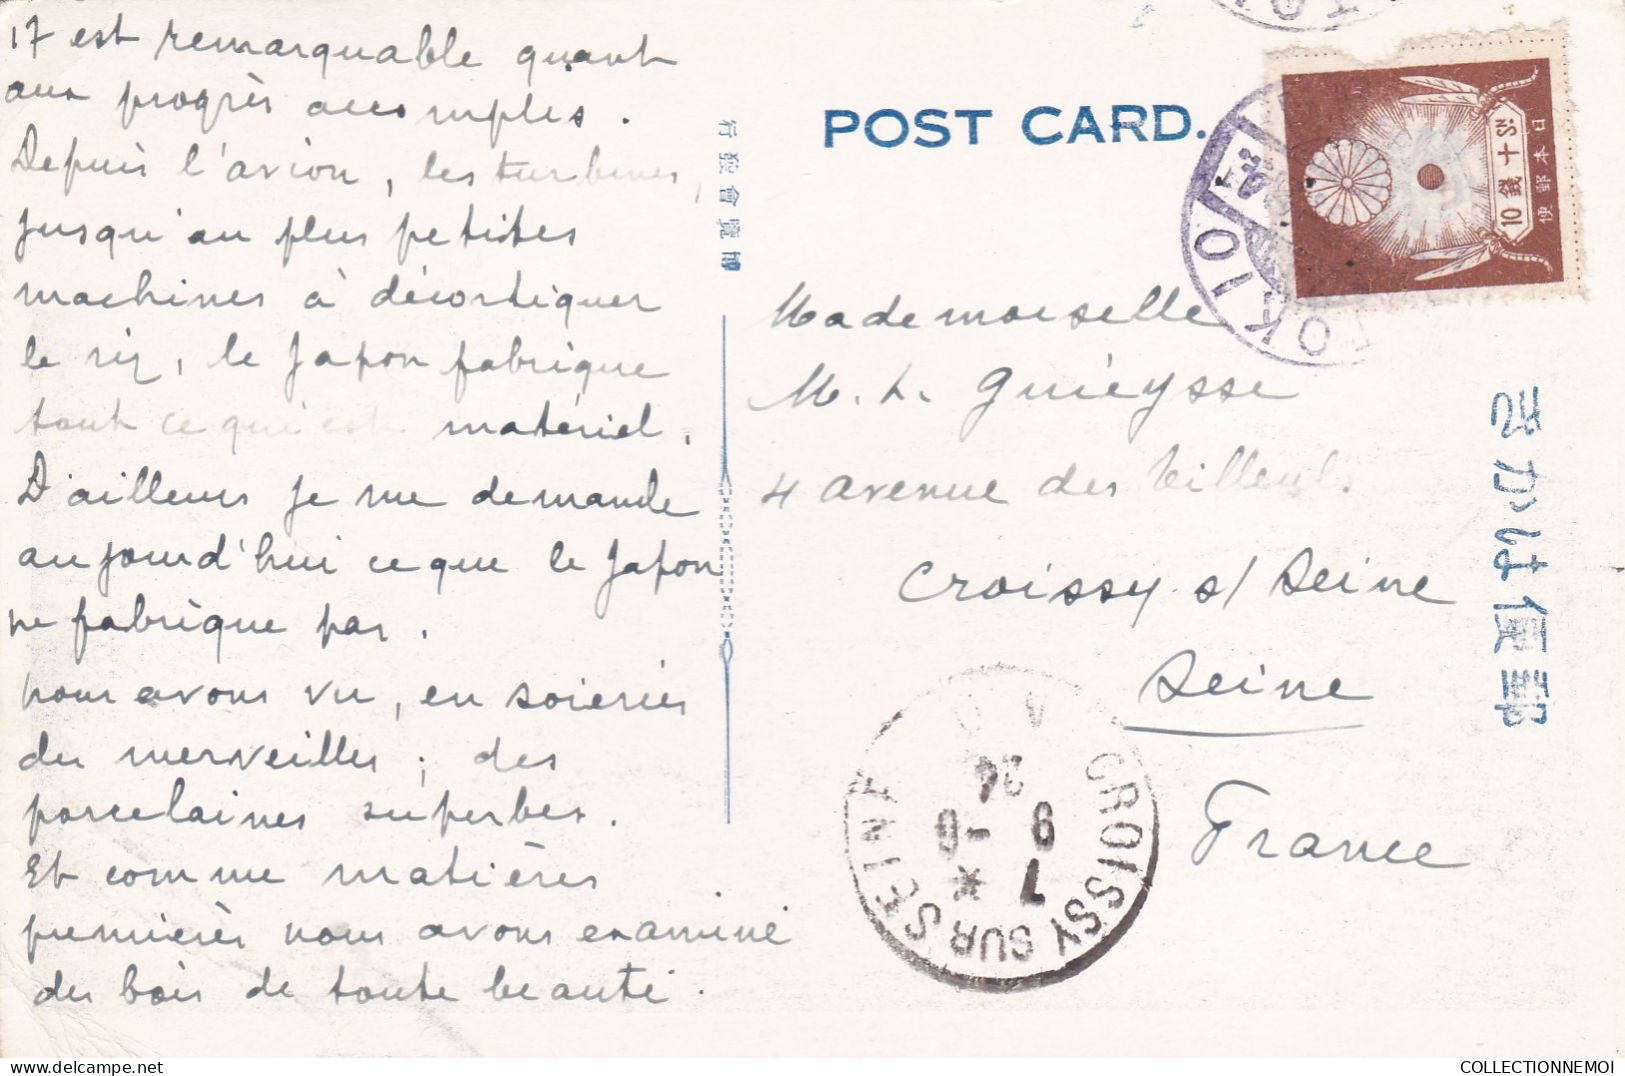 17 est remarquable quant
aux progrès accomplis.
Depuis l'avion, les turbines,
jusqu'au plus petites
machines à décortiquer
le riz, le Japon fabrique
tout ce qui est matériel.
D'ailleurs je me demande
aujourd'hui ce que le Japon
ne fabrique pas.
nous avons vu, en soieries
des merveilles, des
porcelaines superbes.
Et comme matières
premières nous avons examiné
des bois de toute beauté.
博覧會發行
POST CARD.
TOKIO
日本郵便
10 銭 十 Sn.
Mademoiselle
M. L. Guieysse
4 avenue des Tilleuls.
Croissy s/ Seine
Seine
France
郵便はがき
CROISSY SUR SEINE
7 *
9 -6
24
COLLECTIONNEMOI